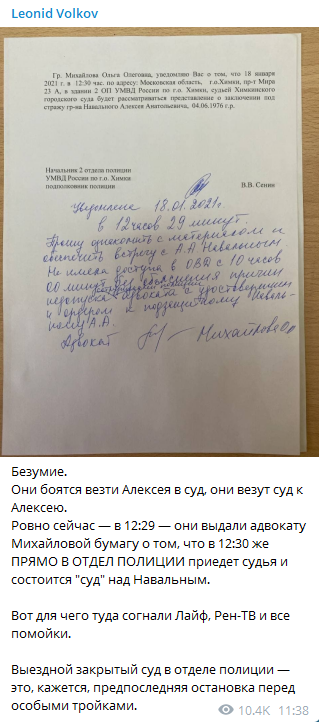 Leonid Volkov
Гр. Михайлова Ольга Олеговна, уведомляю Вас о том, что 18 января
2021 г. в 12:30 час. по адресу: Московская область, г.о.Химки, пр-т Мира
23 А, в здании 2 ОП УМВД России по г.о. Химки, судьей Химкинского
городского суда будет рассматриваться представление о заключении под
стражу гр-на Навального Алексея Анатольевича, 04.06.1976 г.р.
Начальник 2 отдела полиции
УМВД России по г.о. Химки
подполковник полиции В.В. Сенин
Уведомлена 18.01.2021г.
в 12 часов 29 минут.
Прошу ознакомить с материалом и
обеспечить встречу с А.А Навальным
Не имела доступа в ОВД с 10 часов
00 минут без объяснения причин
недопуска адвоката с удостоверением
и ордером к подзащитному Наваль-
ному А.А.
Адвокат Михайлова О.О
Безумие.
Они боятся везти Алексея в суд, они везут суд к
Алексею.
Ровно сейчас — в 12:29 — они выдали адвокату
Михайловой бумагу о том, что в 12:30 же
ПРЯМО В ОТДЕЛ ПОЛИЦИИ приедет судья и
состоится "суд" над Навальным.
Вот для чего туда согнали Лайф, Рен-ТВ и все
помойки.
Выездной закрытый суд в отделе полиции —
это, кажется, предпоследняя остановка перед
особыми тройками.
10.4K 11:38